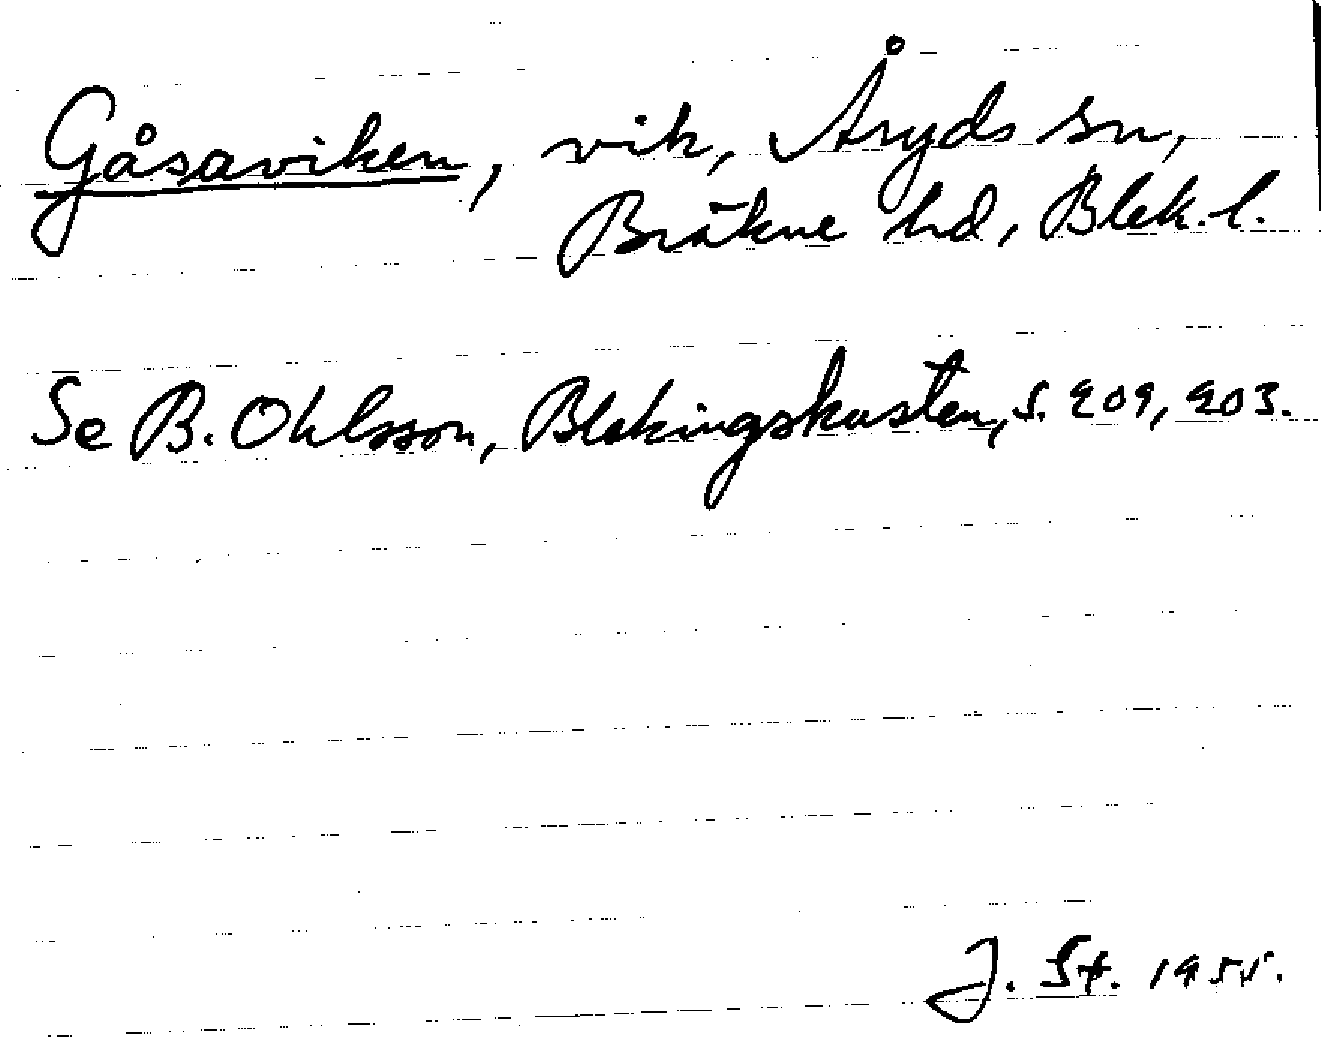 Gåsaviken, vik, Åryds sn,
Bräkne hd, Blek. l.
Se B. Ohlsson, Blekingskusten, s. 209, 203.
J. St. 1955.